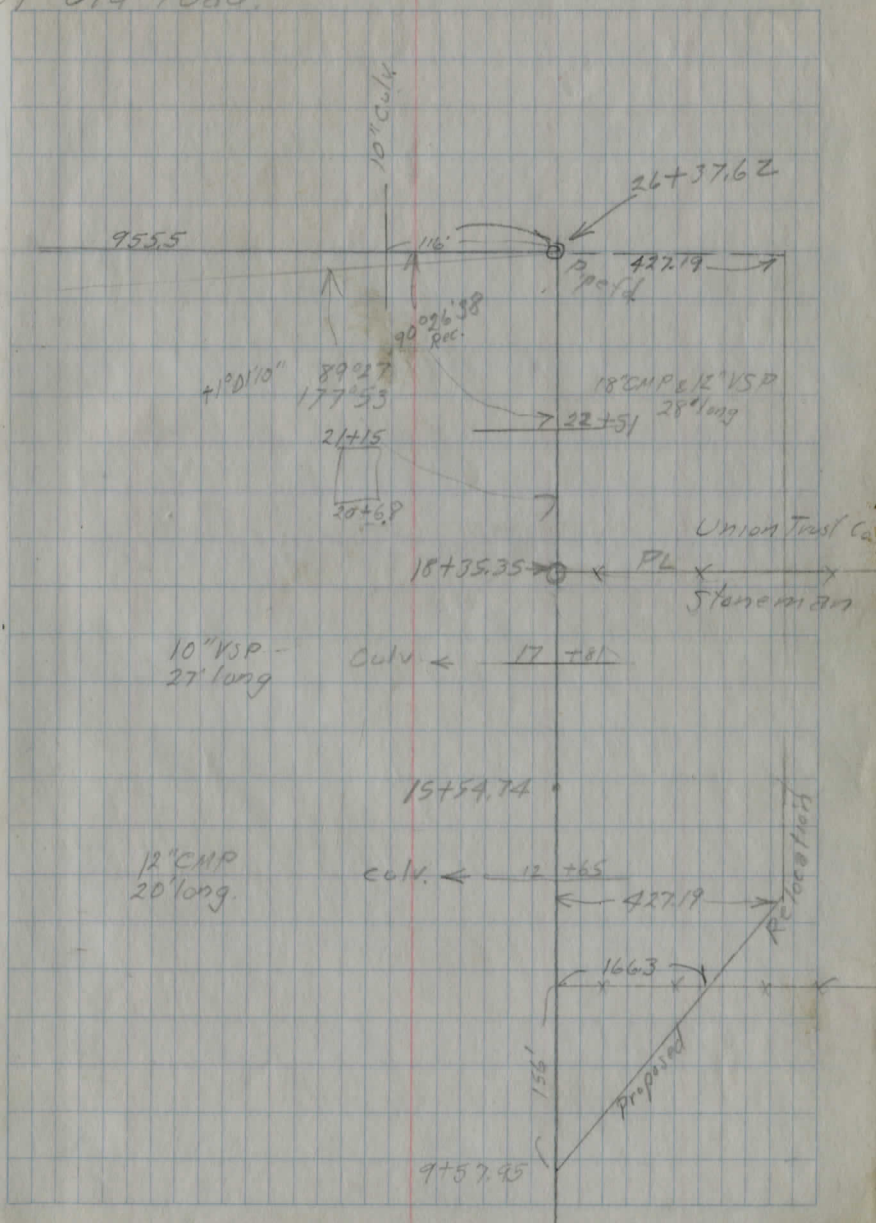 old road.
10" Culv.
26+37.62
955.5
116'
427.19
90°26'38
Rec.
+1°01'10"
89°27
177°53
18"CMP & 12" VSP
28' long
22+51
21+15
20+68
Union Trust Co
18+35.35
PL
Stoneman
10" VSP -
27' long
Culv.
17 +81
15+54.74
12" CMP
20' long.
culv.
12 +65
427.19
Relocation
166.3
156'
Proposed
9+57.95